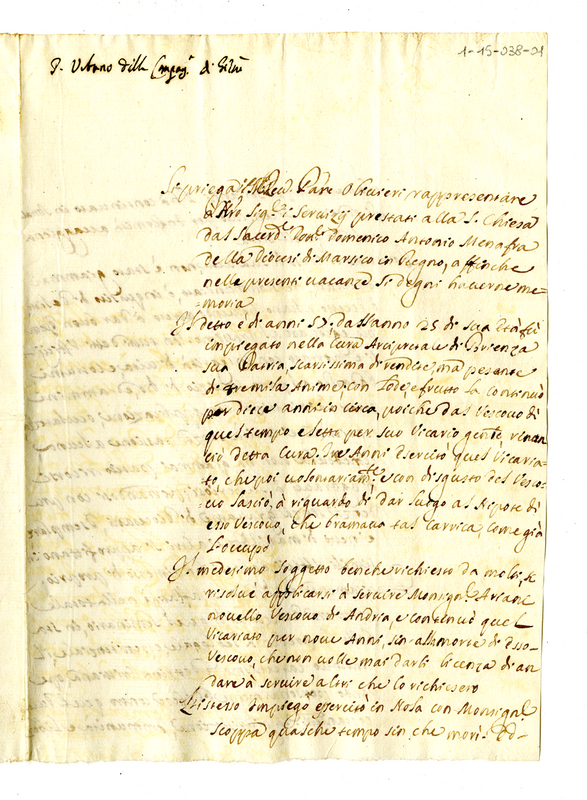 1-15-038-01
P. Urbano della Compag.ª di Giesù
Si priega il Rev. Padre Olivieri rappresentare
à N̄ro Sig.re i servizij prestati alla S. Chiesa
dal Sacerd.e Dom.o Domenico Antonio Menafra
della Diocesi di Marsico in Regno, affinche
nelle presenti vacanze si degni haverne me-
moria
Il detto è di anni 57. dall'anno 25 di sua età fù
impiegato nella Cura Arcipretale di Brienza
sua Patria, scarsissima di rendite, mà pesante
di tremila Anime, con lode, e frutto la continuò
per diece anni in circa, poiche dal Vescovo di
quel tempo eletto per suo Vicario gen̄le, rinun-
ciò detta Cura. Tre Anni esercitò quel Vicaria-
to, che poi volontariam.te e con disgusto del Vesco-
vo lasciò, à riguardo di dar luogo al Nipote di
esso Vescovo, che bramava tal carrica, come già
l'occupò
Il medesimo soggetto benche richiesto da molti, si
risolvè applicarsi à servire Monsign.r Ariani
novello Vescovo di Andria, e continuò quel
Vicariato per nove Anni, sin alla morte di esso
Vescovo, che non volle mai darli licenza di an-
dare à servire altri che lo richiesero
L'istesso impiego esercitò in Nola con Monsign.r
Scoppa qualche tempo sin che morì. Ed-